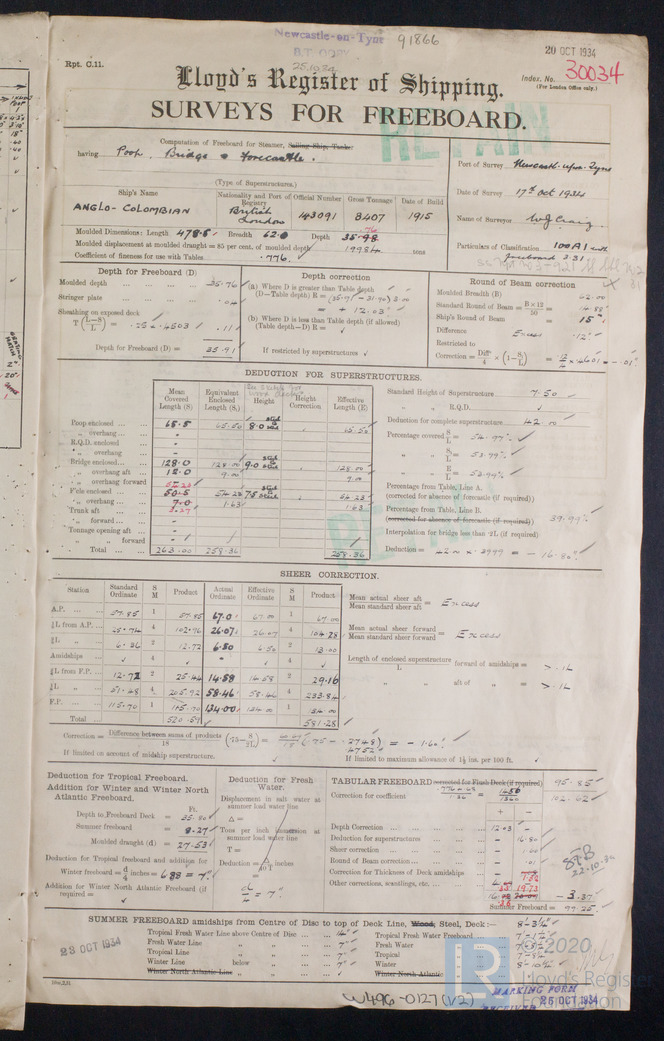 Newcastle-on-Tyne
91866
20 OCT 1934
Rpt. C.11.
Index. No. 30034
(For London Office only.)
Lloyd's Register of Shipping.
SURVEYS FOR FREEBOARD.
RETAIN
Computation of Freeboard for Steamer, Sailing Ship, Tanker
having Poop, Bridge & Forecastle.
(Type of Superstructures.)
Port of Survey Newcastle-upon-Tyne
Date of Survey 17th Oct 1934
Name of Surveyor W.J. Craig.
Particulars of Classification 100A1 with freeboard 3.31
Ship's Name
Nationality and Port of Registry
Official Number
Gross Tonnage
Date of Build
ANGLO-COLOMBIAN
British London
143091
8407
1915
Moulded Dimensions: Length 478.5 Breadth 62.0 Depth 35.98 .76
Moulded displacement at moulded draught = 85 per cent. of moulded depth 19984 tons
Coefficient of fineness for use with Tables .776
Depth for Freeboard (D)
Moulded depth 35.76
Stringer plate .04
Sheathing on exposed deck
T (L-S / L) = .25 × .4503 .11
Depth for Freeboard (D) = 35.91
Depth correction
(a) Where D is greater than Table depth
(D—Table depth) R = (35.91 - 31.90) 3.00
= + 12.03
(b) Where D is less than Table depth (if allowed)
(Table depth—D) R =
If restricted by superstructures
Round of Beam correction
Moulded Breadth (B) 62.00
Standard Round of Beam = B×12 / 50 = 14.88
Ship's Round of Beam = 15"
Difference Excess .12
Restricted to
Correction = Diff / 4 × (1 - S / L) = .12 / 4 × .4601 = - .01
DEDUCTION FOR SUPERSTRUCTURES.
Mean Covered Length (S)
Equivalent Enclosed Length (S₁)
Height
Height Correction
Effective Length (E)
Poop enclosed 65.5 65.50 8.0 65.50
„ overhang -
R.Q.D. enclosed -
„ overhang -
Bridge enclosed 128.0 128.00 9.0 128.00
„ overhang aft 12.0 9.00 9.00
„ overhang forward
F'cle enclosed 54.23 50.5 54.23 7.5 54.23
„ overhang 7.0 3.27 1.63 1.63
Trunk aft -
„ forward -
Tonnage opening aft -
„ „ forward -
Total 263.00 258.36 258.36
Standard Height of Superstructure 7.50
„ „ R.Q.D.
Deduction for complete superstructure 42.00
Percentage covered S / L = 54.97%
„ „ S₁ / L = 53.99%
„ „ E / L = 53.99%
Percentage from Table, Line A.
(corrected for absence of forecastle (if required))
Percentage from Table, Line B. 39.99%
(corrected for absence of forecastle (if required))
Interpolation for bridge less than ·2L (if required)
Deduction = 42 × .3999 = - 16.80
SHEER CORRECTION.
Station
Standard Ordinate
S M
Product
Actual Ordinate
Effective Ordinate
S M
Product
A.P. 57.85 1 57.85 67.0 67.00 1 67.00
⅙L from A.P. 25.74 4 102.96 26.07 26.07 4 104.28
⅓L „ 6.36 2 12.72 6.50 6.50 2 13.00
Amidships 4 - 4
⅓L from F.P. 12.72 2 25.44 14.58 14.58 2 29.16
⅙L „ 51.48 4 205.92 58.46 58.46 4 233.84
F.P. 115.70 1 115.70 134.00 134.00 1 134.00
Total 520.59 581.28
Mean actual sheer aft / Mean standard sheer aft = Excess
Mean actual sheer forward / Mean standard sheer forward = Excess
Length of enclosed superstructure / L forward of amidships = > .1L
„ „ aft of „ = > .1L
Correction = Difference between sums of products / 18 (·75 - S / 2L) = 60.69 / 18 (.75 - .2748) .4752 = - 1.60
If limited on account of midship superstructure.
If limited to maximum allowance of 1½ ins. per 100 ft.
Deduction for Tropical Freeboard.
Addition for Winter and Winter North Atlantic Freeboard.
Ft.
Depth to Freeboard Deck = 35.80
Summer freeboard = 8.27
Moulded draught (d) = 27.53
Deduction for Tropical freeboard and addition for
Winter freeboard = d / 4 inches = 6.88 = 7"
Addition for Winter North Atlantic Freeboard (if required) =
Deduction for Fresh Water.
Displacement in salt water at summer load water line
Δ =
Tons per inch immersion at summer load water line
T =
Deduction = Δ / 40T inches
= d / 4 = 7"
TABULAR FREEBOARD corrected for Flush Deck (if required) 95.85
Correction for coefficient .776 + .68 / 1.36 = 1456 / 1360 102.62
+ -
Depth Correction 12.03 -
Deduction for superstructures - 16.80
Sheer correction - .00
Round of Beam correction - .01
Correction for Thickness of Deck amidships
Other corrections, scantlings, etc.
- 3.37
Summer Freeboard = 99.25
22.10.34
SUMMER FREEBOARD amidships from Centre of Disc to top of Deck Line, Wood, Steel, Deck:— 8'-3¼"
Tropical Fresh Water Line above Centre of Disc 14"
Fresh Water Line „ „ 7"
Tropical Line „ „ 7"
Winter Line below „ 7"
Winter North Atlantic Line „ „
Tropical Fresh Water Freeboard 7'-1¼"
Fresh Water „ 7'-8¼"
Tropical „ 7'-8¼"
Winter „ 8'-10¼"
Winter North Atlantic „
23 OCT 1934
10m,2,31
W496-0127 (1/2)
MARKING FORM
RECEIVED 26 OCT 1934
LR
© 2020
Lloyd's Register
Foundation